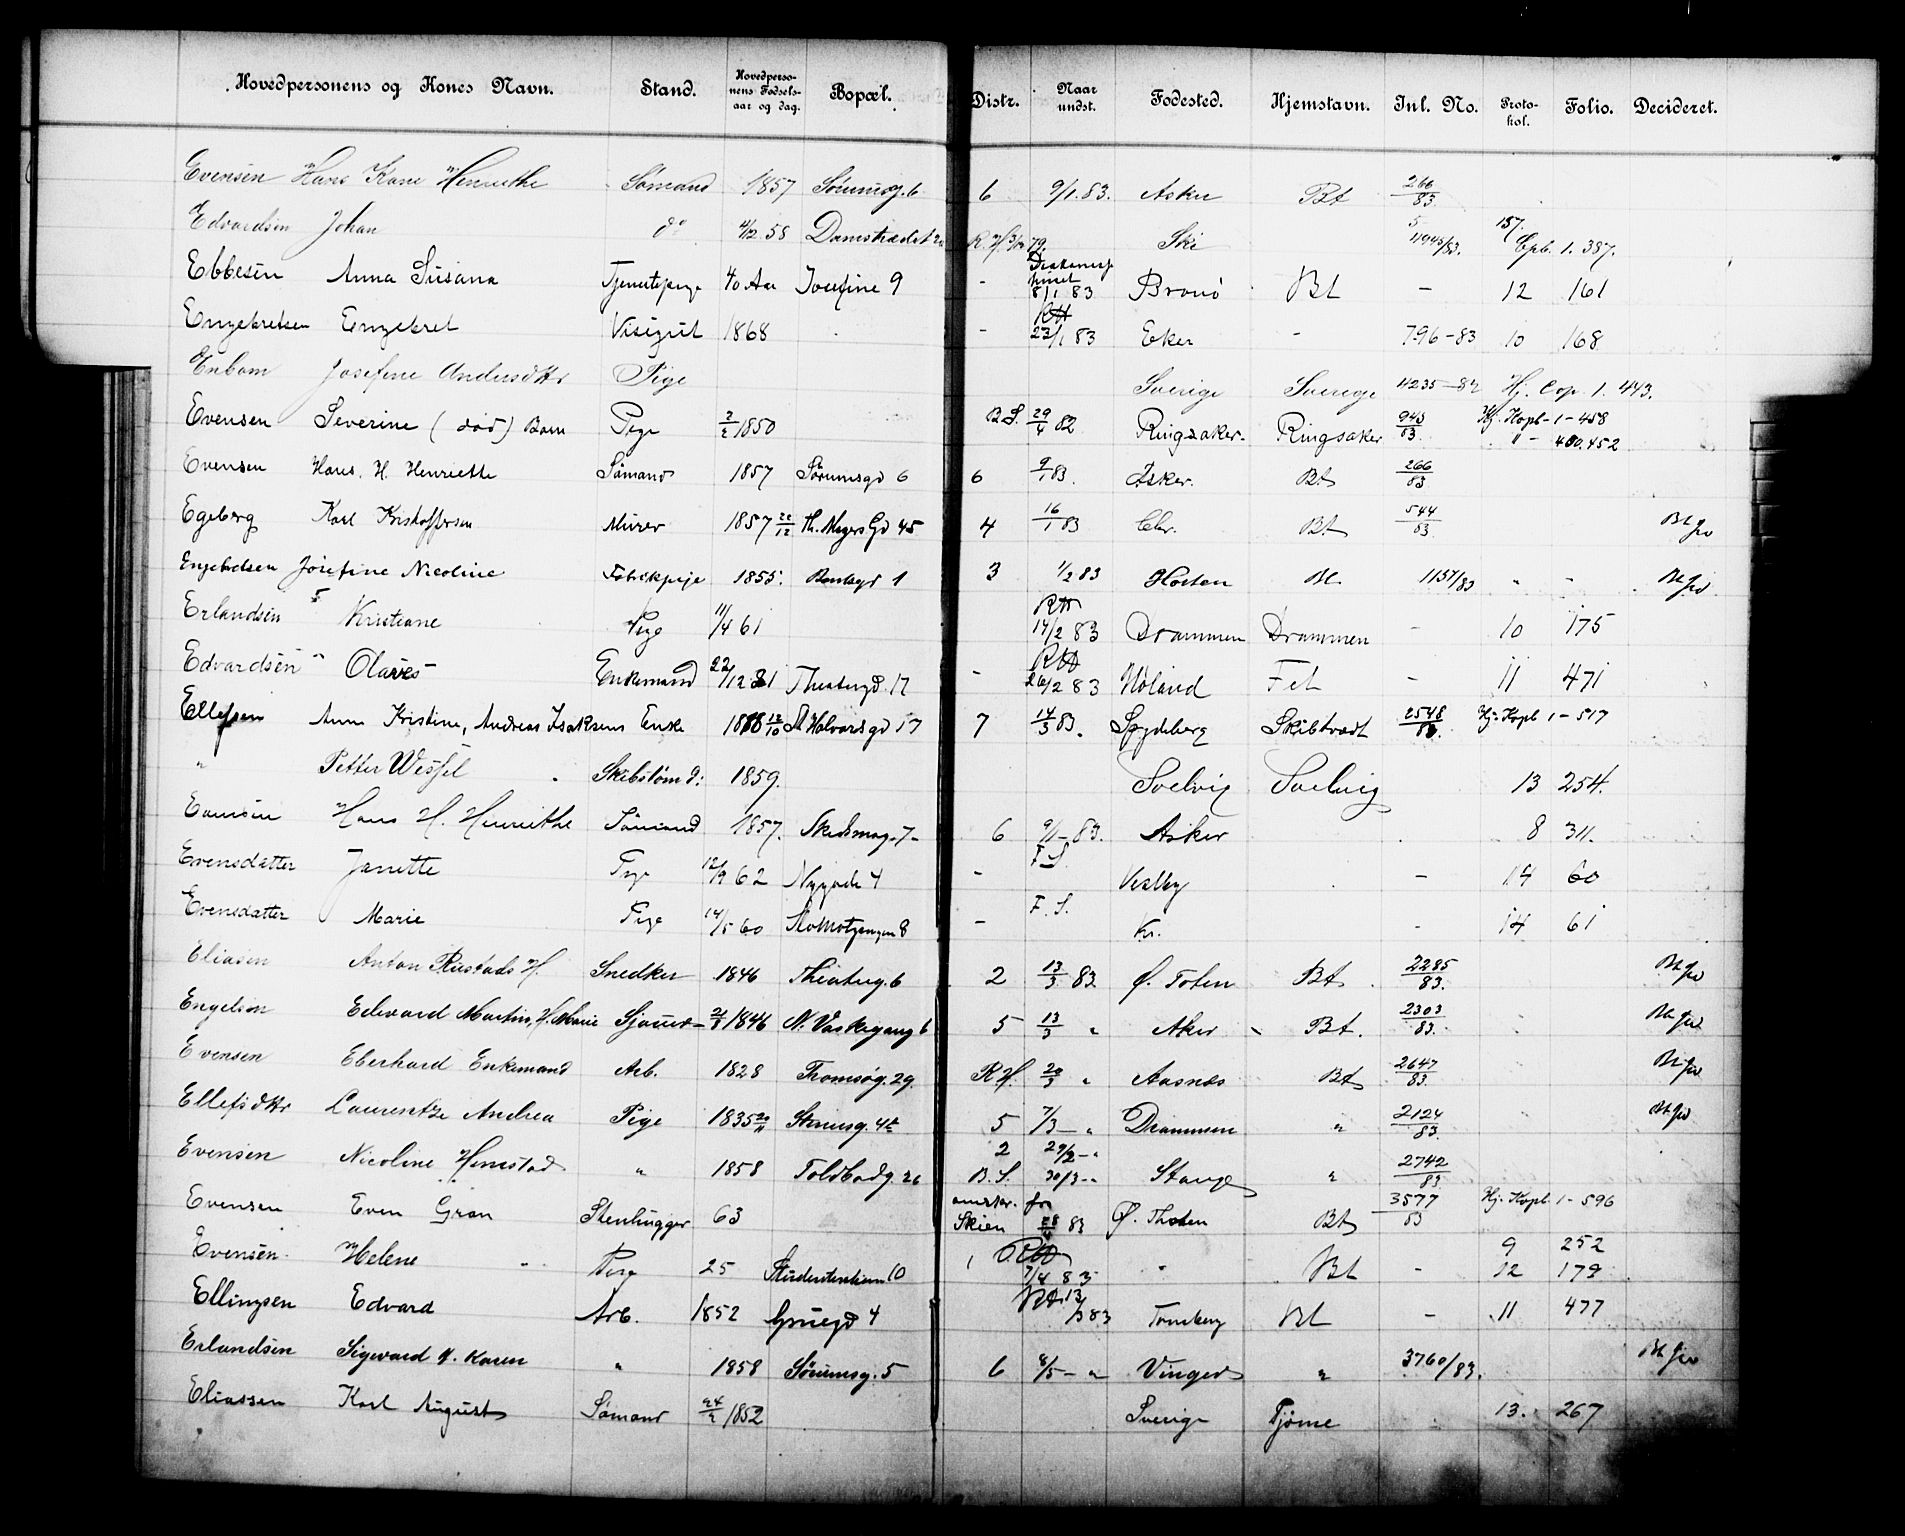 Hovedpersonens og Kones Navn. Stand. Hovedpersonens Fødselsaar og dag. Bopæl. Distr. Naar undst. Fødested. Hjemstavn. Inl. No. Protokol. Folio. Decideret.
Evensen Hans Kone Henriethe Sømand 1857 Sørumsg. 6 6 9/1.83. Asker Bt 266/83
Edvardsen Johan do 4/2 55 Damstrædet R. H. 79. Ski 11945/83. Cpb. 1. 387.
Ebbesen Anna Susana Tjenestepige 40 Aar Josefine 9 - 8/1 83 Brønø Bt - 12 161
Engebretsen Engebret Visergut 1868 - RH 23/1 83 Eker - 796-83 10 168
Enbom Josefine Andersdttr Pige Sverige Sverige 11235-82 Hj. Cop. 1. 443.
Evensen Severine (død) Barn Pige 2/2 1850 B.S. 29/4 82 Ringsaker. Ringsaker 943/83 Hj. Kopb-1-458
" - 400.452
Evensen Hans. H. Henriette Sømand 1857 Sørumsgd 6 6 9/1 83. Asker. Bt 266/83
Egeberg Karl Kristoffersen Murer 1857 22/12 Th. Meyers Gd 45 4 16/1 83 Chr. Bt 544/83 Bt Jw
Engebretsen Josefine Nicoline Fabrikpige 1855. 1 3 1/2 83 Horten Bt. 1137/83 " - Bt Jw
Erlandsen Kristiane Pige 11/4 61 RH 14/2 83 Drammen Drammen - 10 175
Edvardsen Olaves Enkemand 22/12 31 Theatergd. 17 - RH 26/2 83 Høland Fet - 11 471
Ellefsen Anne Kristine, Andreas Isaksens Enke 1818 12/10 St Halvardsgd 17 7 14/3 83. Spydeberg Skibtvedt 2548/83. Hj. Kopb 1-517
" Petter Wessel Skibstømd: 1859. Svelvig Svelvig 13 254.
Evensen Hans H. Henriethe Sømand 1857. Skedsmog. 7- 6 9/1-83. Asker 8 311.
Evensdatter Janette Pige 12/9 62 Nygade 4 - F.S. Vestby - 14 60
Evensdatter Marie Pige 14/5 60 8 - F.S. Kr. - 14 61
Eliasen Anton Rustads H. Snedker 1846 Theaterg. 6 2 13/3 83 Ø. Toten Bt 2285/83. Bt Jw
Engelsen Edward Martin, H. Marie Sjouer- 21/8 1846 N. Vaskegang 6 5 13/3 " Aker - Bt. 2303/83. Bt Jw
Evensen Eberhard Enkemand Arb. 1828 Tromsøg. 29. R H. 20/3 " Aasnes Bt 2647/83. Bt Jw
Ellefsdttr Laurentze Andrea Pige 1835 20/11 Stensg. 4 5 7/3 - " Drammen " 2124/83. Bt Jw
Evensen Nicoline Hemstad " 1858 Toldbodg. 26 2 29/2 - "
B.S. 30/3 - " Stange " 2742/83
Evensen Even Gran Stenhugger 63 ønsker for Skien 28/4 83 Ø. Thoten Bt 3577/83 Hj. Kopb. 1-596
Evensen Helene Pige 25 Studenterlunden 10 1 RH 7/4 83 " Bt - 9 252
12 179
Ellingsen Edvard Arb. 1852 Gruegd 4 RH 13/3 83 Tønsberg Bt - 11 477
Erlandsen Sigvard H. Karen " 1858 Sørumsg. 5 6 8/5 - " Vinger " 3760/83. Bt Jw
Eliassen Karl August Sømand 24/2 1852 Sverige Tjøme 13. 267